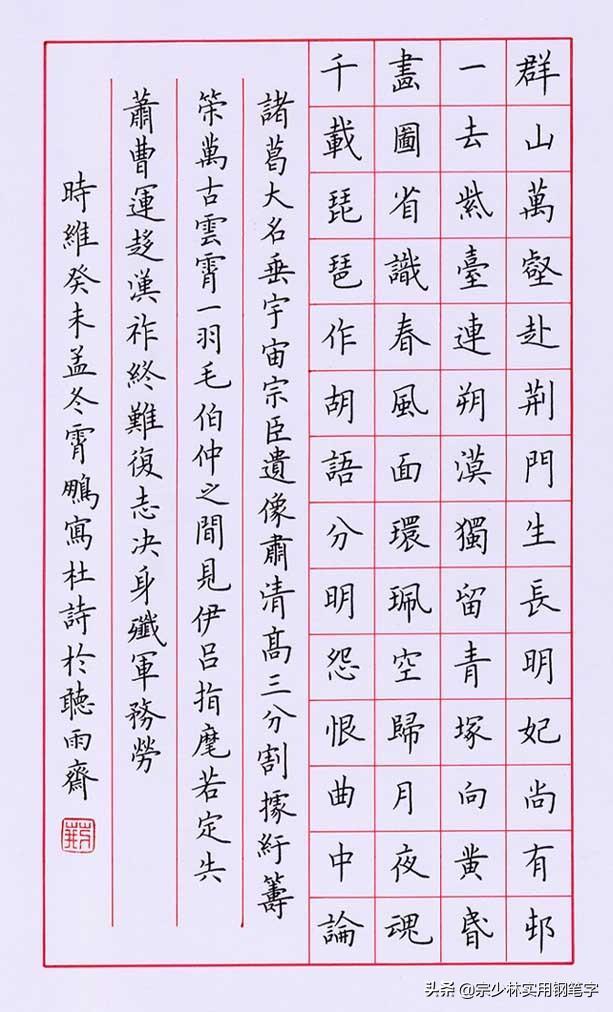 群山萬壑赴荆門生長明妃尚有邨
一去紫臺連朔漠獨留青塚向黄昏
畫圖省識春風面環珮空歸月夜魂
千載琵琶作胡語分明怨恨曲中論
諸葛大名垂宇宙宗臣遺像肅清高三分割據紆籌
策萬古雲霄一羽毛伯仲之間見伊吕指麾若定失
蕭曹運趍漢祚終難復志决身殲軍務勞
時維癸未孟冬霄鵬寫杜詩於聽雨齋
头条 @宗少林实用钢笔字